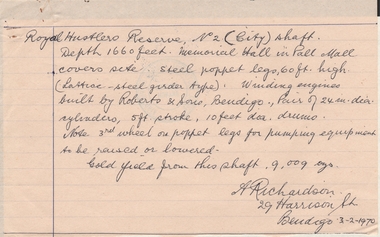 Royal Hustlers Reserve, No 2 (City) Shaft.
Depth 1660 feet. Memorial Hall in Pall Mall
covers site. Steel poppet legs, 60 ft. high
(Lattice-steel girder type). Winding engines
built by Roberts & Sons, Bendigo. Pair of 24 in. dia.
cylinders, 5 ft. stroke, 10 feet dia. drums.
Note 3rd wheel on poppet legs for pumping equipment
to be raised or lowered.
Gold yield from this shaft, 9,009 ozs.
A Richardson.
29 Harrison St
Bendigo 3-2-1970